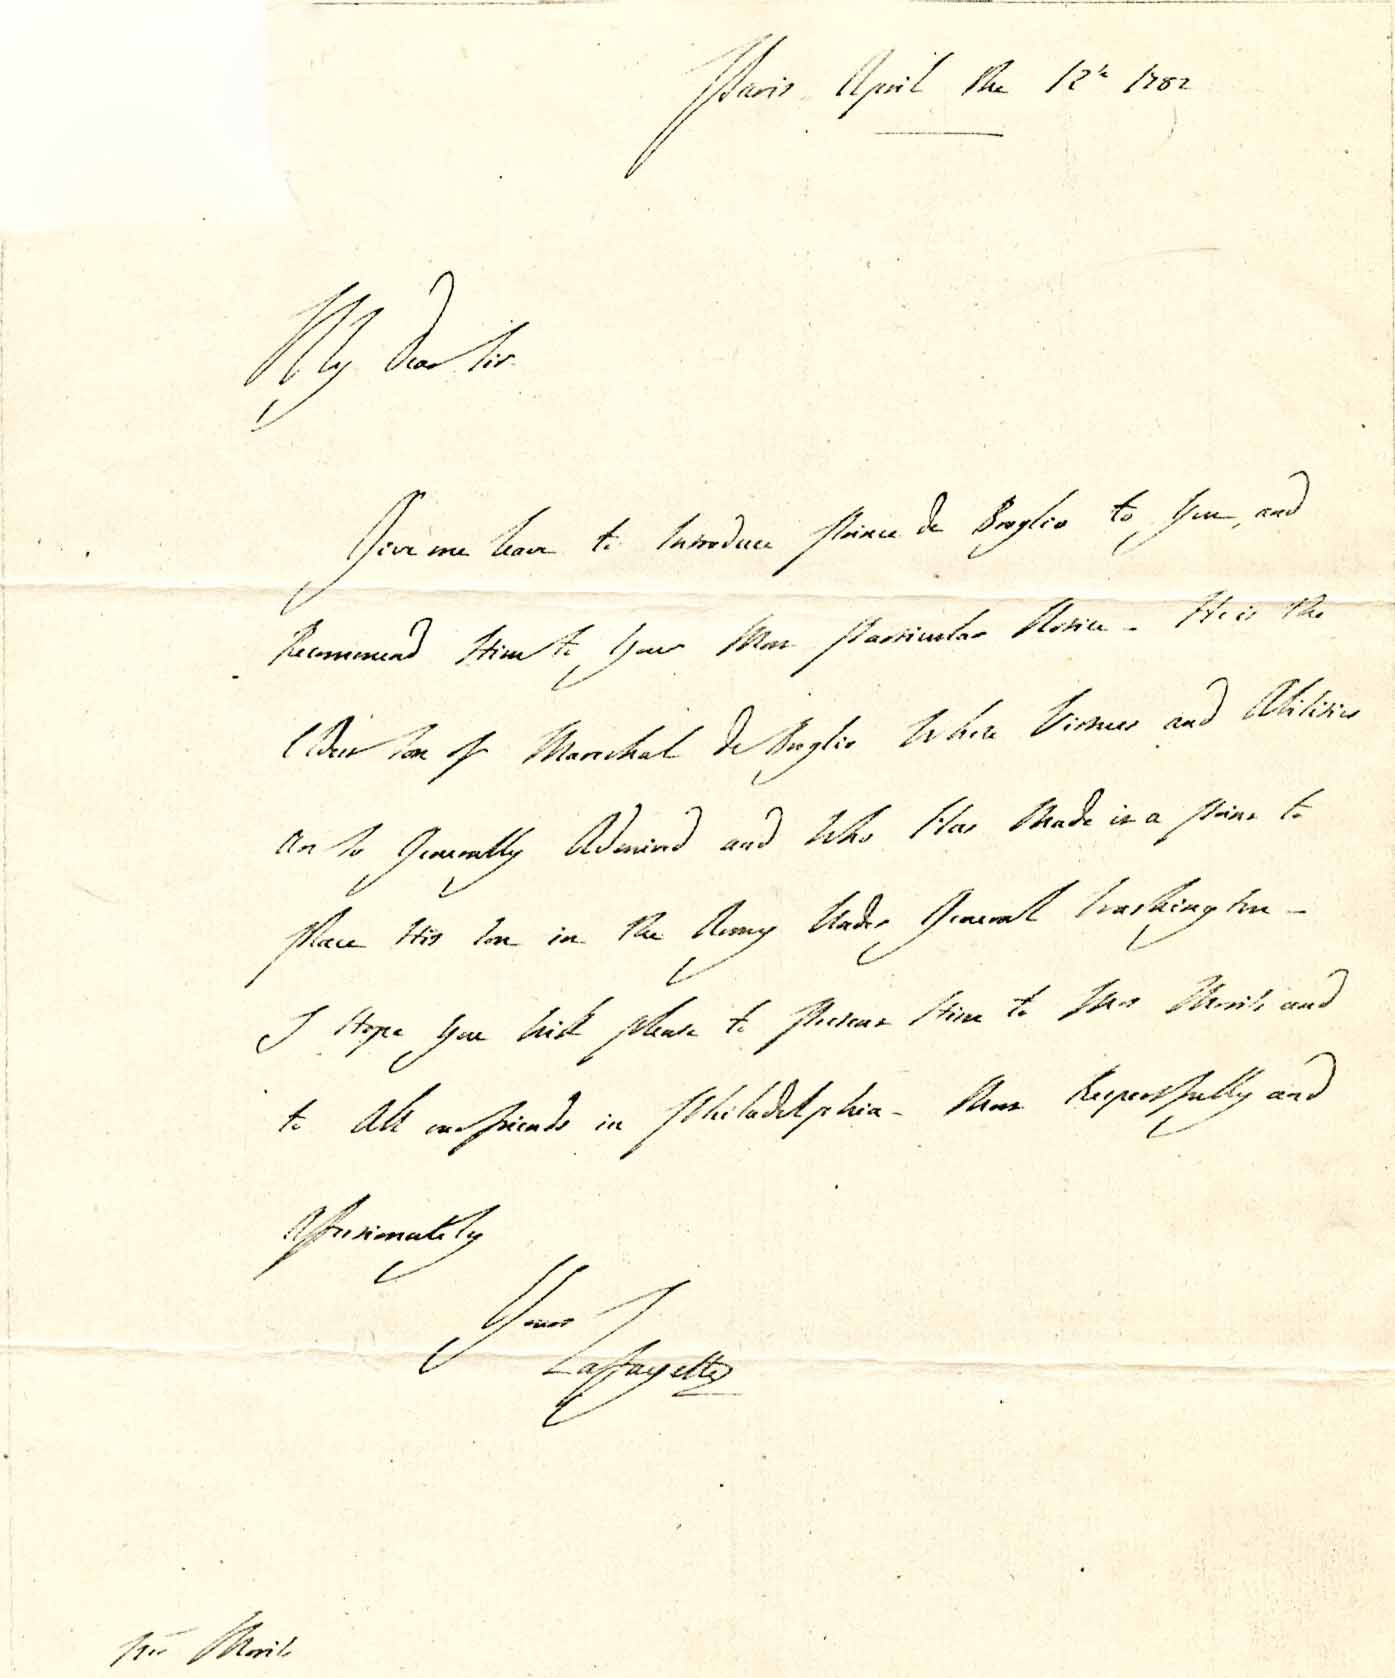 Paris April the 12th 1782
My dear Sir
Give me leave to Introduce Prince de Broglio to You, and
Recommend Him to Your Most Particular Notice - He is the
Elder Son of Marechal de Broglio Whose Virtues and Abilities
are So Generally Admired and Who Has Made it a point to
place His Son in the Army Under General Washington -
I Hope You Will please to Present Him to Mrs Morris and
to All our friends in Philadelphia - Most Respectfully and
Affectionately
Yours
Lafayette
Morris